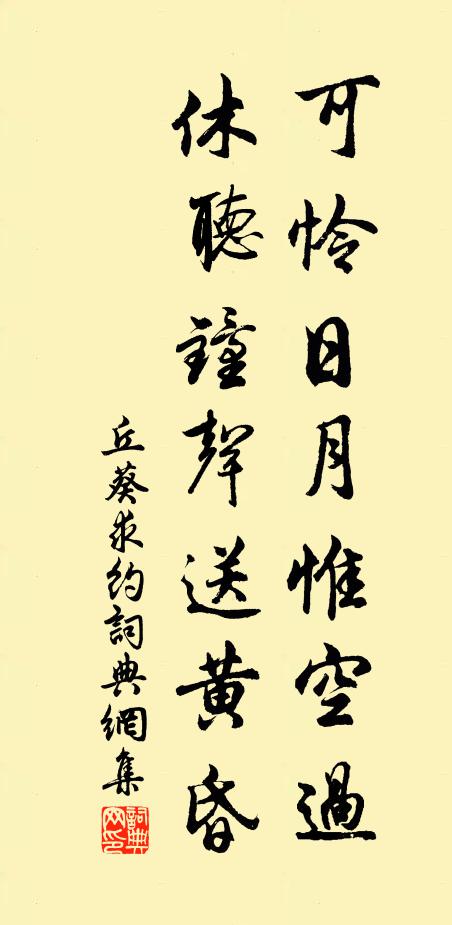 可怜日月惟空過
休聽鐘聲送黄昏
丘葵求約詞典網集
詞典網印